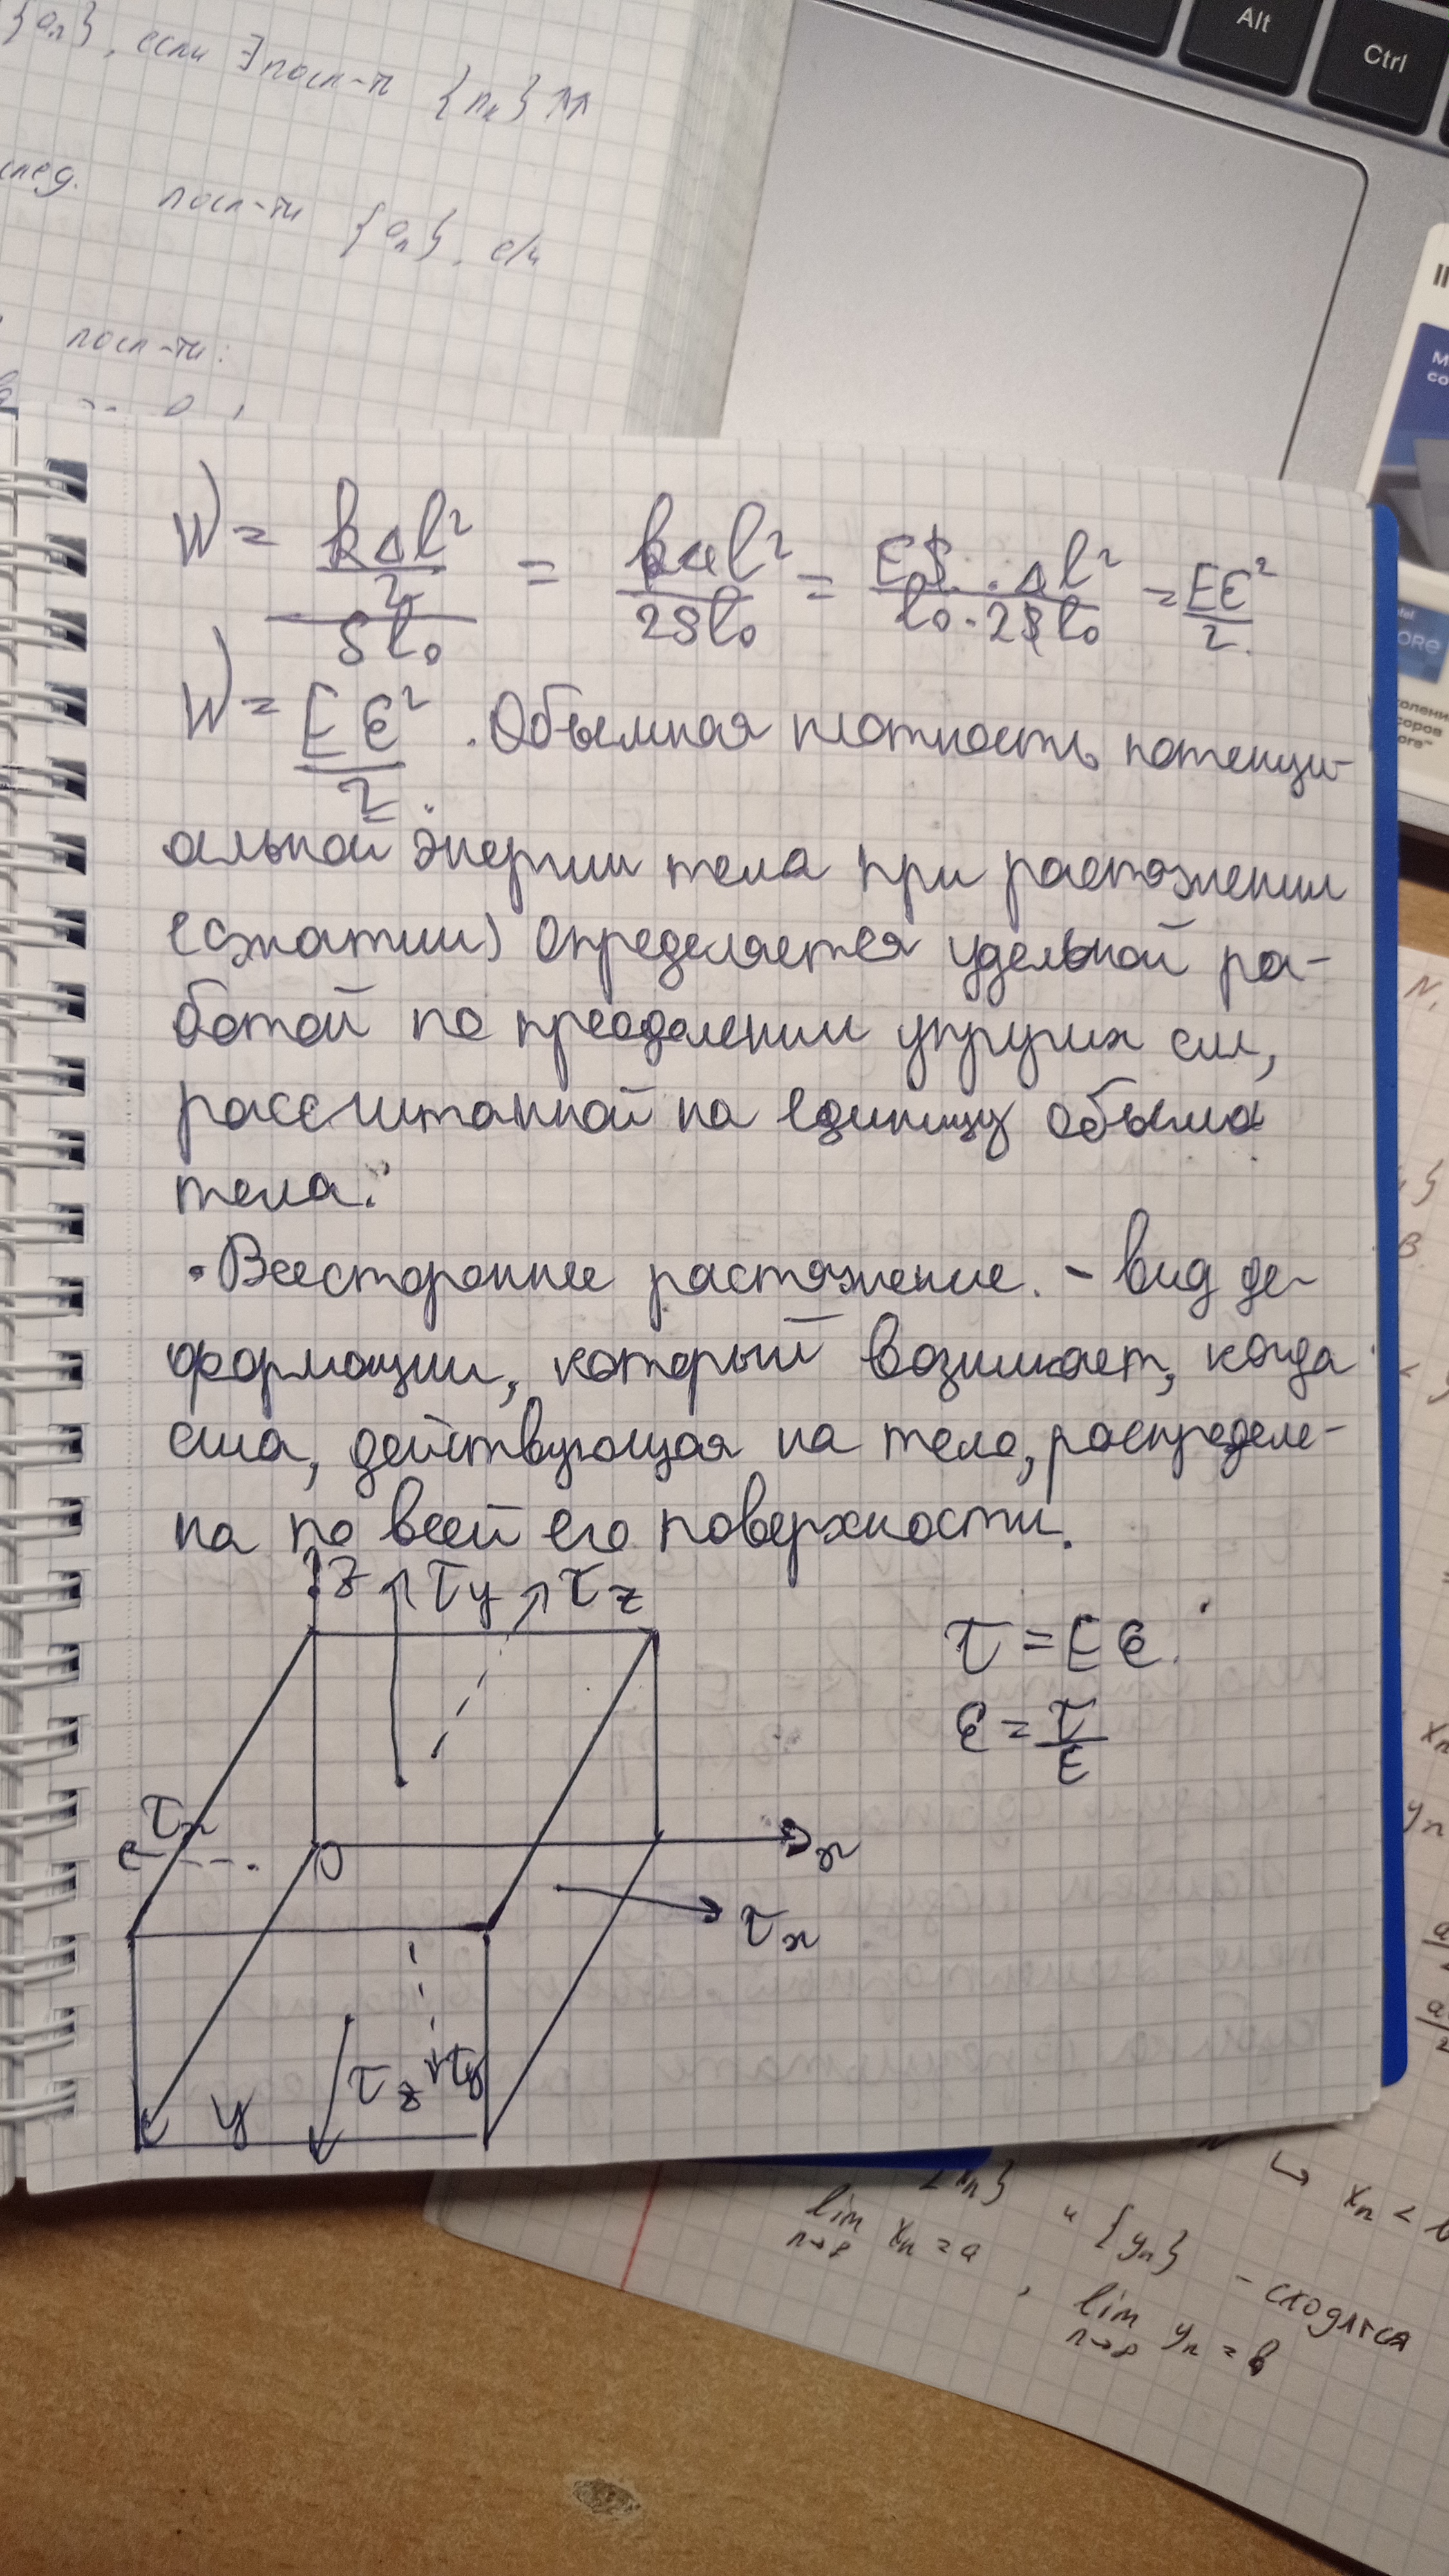 {aₙ}, если ∃ посл-ть {nₖ} ↑↑
след. посл-ти {aₙ}, если
посл-ти:
Alt
Ctrl
W = (kΔl²/2)/(Sl₀) = kΔl²/(2Sl₀) = (ES · Δl²)/(l₀ · 2Sl₀) = Eε²/2
W = Eε²/2. Объемная плотность потенци-
альной энергии тела при растяжении
(сжатии) определяется удельной ра-
ботой по преодолении упругих сил,
рассчитанной на единицу объема
тела.
• Всестороннее растяжение. - вид де-
формации, который возникает, когда
сила, действующая на тело, распределе-
на по всей его поверхности.
z τy τz
τ = Eε
ε = τ/E
τx
O x
τx
y τz τy
lim xₙ = a
n→∞
{xₙ} и {yₙ} - сходятся
, lim yₙ = b
n→∞
↪ xₙ <